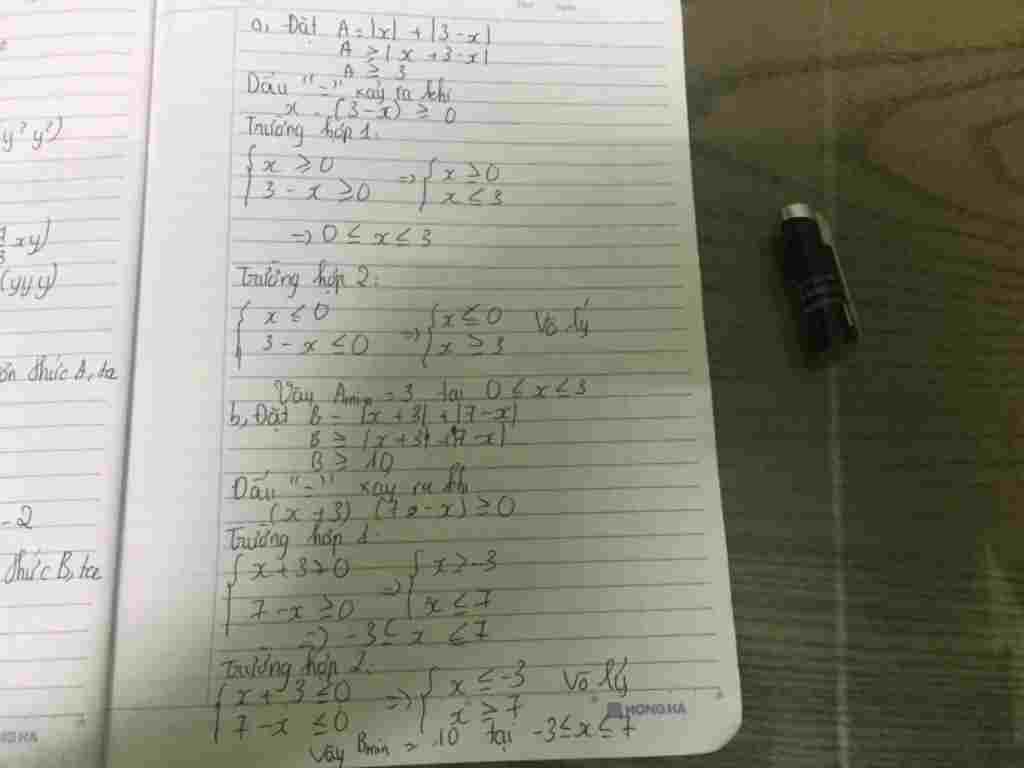 y² y²)
xy)
(yyy)
thức A, ta
-2
thức B, ta
a, Đặt A = |x| + |3-x|
A ≥ |x + 3-x|
A ≥ 3
Dấu "=" xảy ra khi
x . (3-x) ≥ 0
Trường hợp 1:
{ x ≥ 0
3 - x ≥ 0 => { x ≥ 0
x ≤ 3
=> 0 ≤ x ≤ 3
Trường hợp 2:
{ x ≤ 0
3 - x ≤ 0 => { x ≤ 0
x ≥ 3 Vô lý
Vậy Amin = 3 tại 0 ≤ x ≤ 3
b, Đặt B = |x + 3| + |7-x|
B ≥ |x+3+7-x|
B ≥ 10
Dấu "=" xảy ra khi
(x+3) (7-x) ≥ 0
Trường hợp 1:
{ x+3 ≥ 0
7-x ≥ 0 => { x ≥ -3
x ≤ 7
=> -3 ≤ x ≤ 7
Trường hợp 2:
{ x + 3 ≤ 0
7-x ≤ 0 => { x ≤ -3
x ≥ 7 Vô lý
Vậy Bmin = 10 tại -3 ≤ x ≤ 7
HONG HA
NG HA